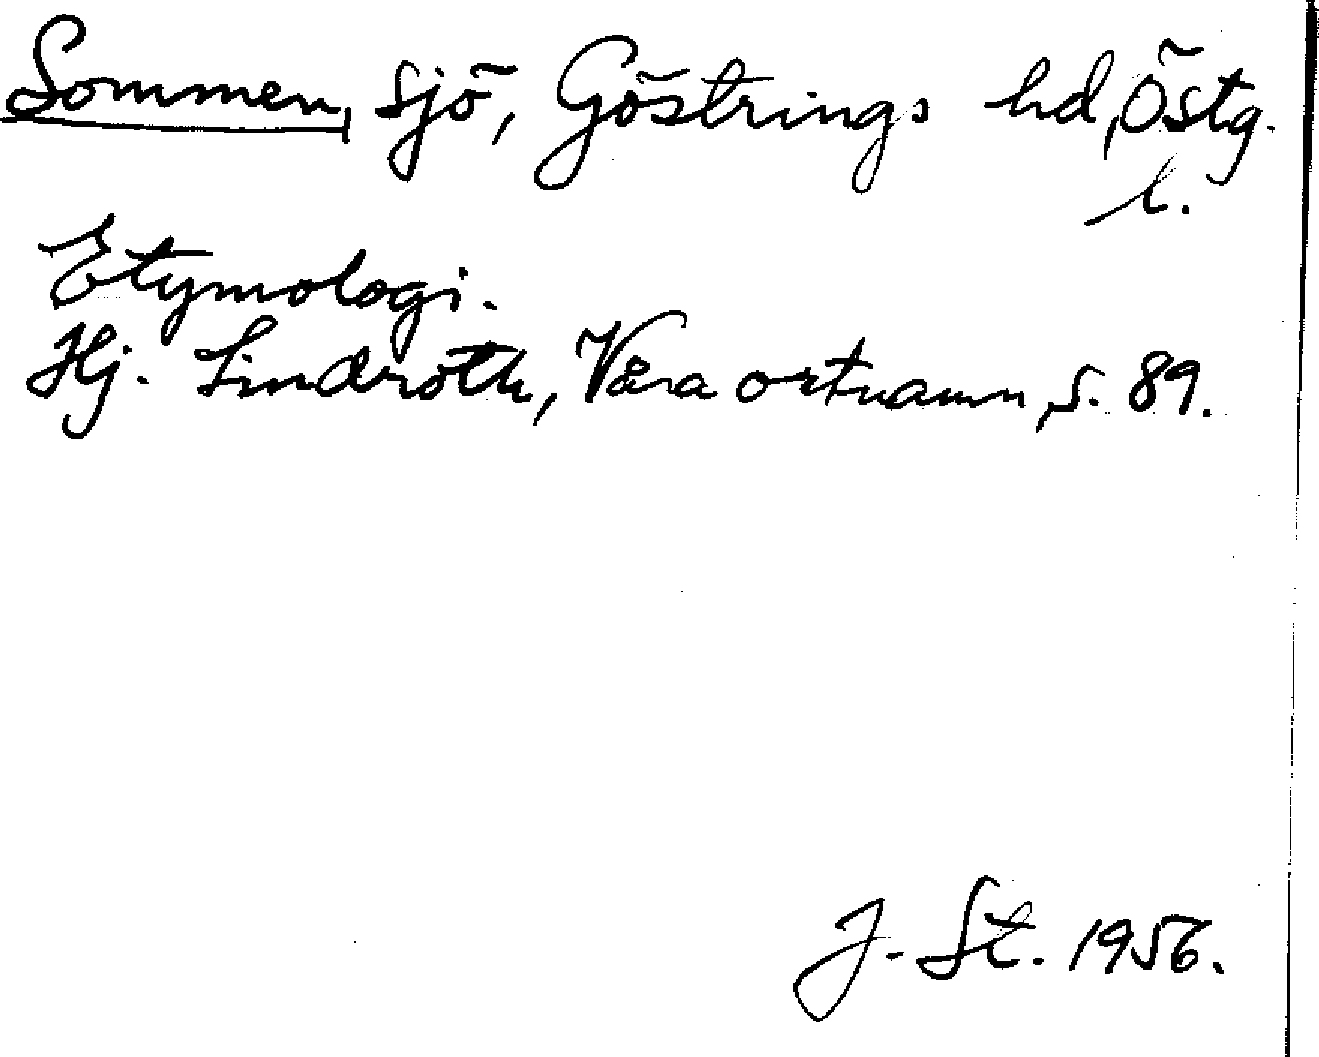 Sommen, sjö, Göstrings hd, Östg.
l.
Etymologi.
Hj. Lindroth, Våra ortnamn, s. 89.
J. St. 1956.